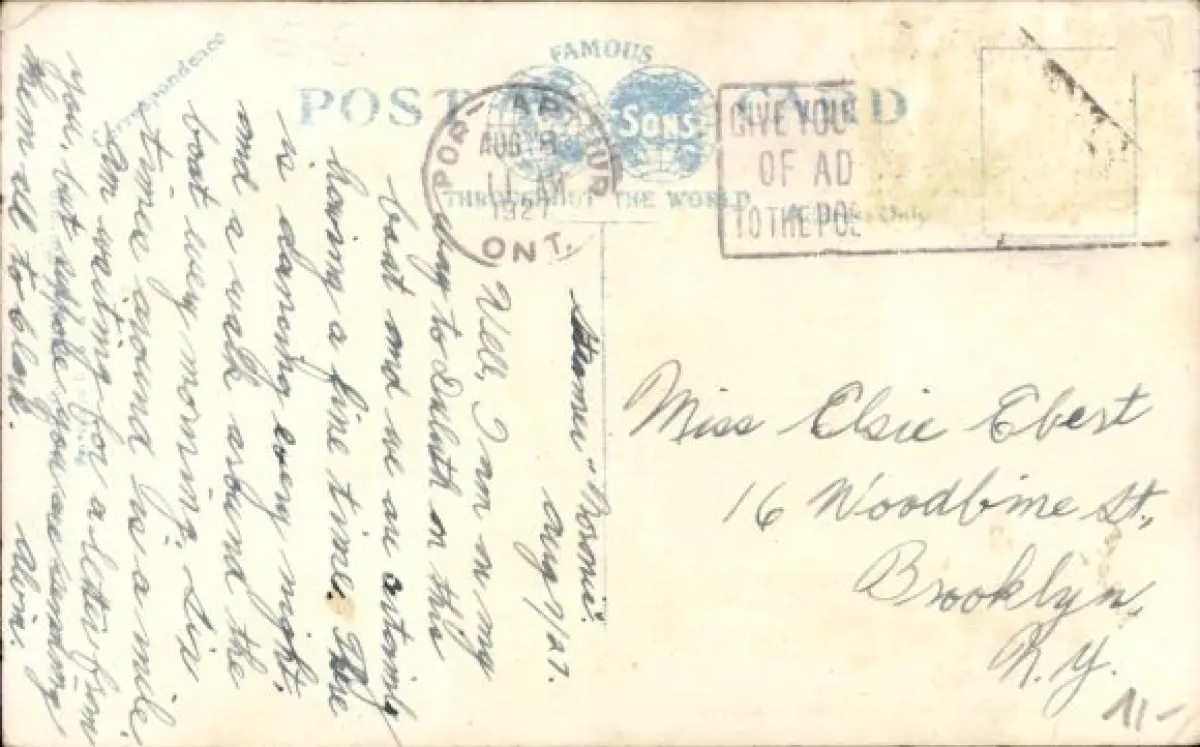 POST CARD
FAMOUS
SONS
THROUGHOUT THE WORLD
Correspondence
Only
POR ARTHUR
AUG
11 AM
1927
ONT.
GIVE YOUR
OF AD
TO THE POS
Steamer "Noronic"
Aug 7/27.
Well, I am on my
way to Duluth on this
boat and we are
having a fine time. There
is dancing every night
and a walk around the
boat every morning. Six
times around is a mile.
Am waiting for a letter from
you, but suppose you are sending
them all to
Alvin.
Miss Elsie Ebert
16 Woodbine St.,
Brooklyn,
N.Y.